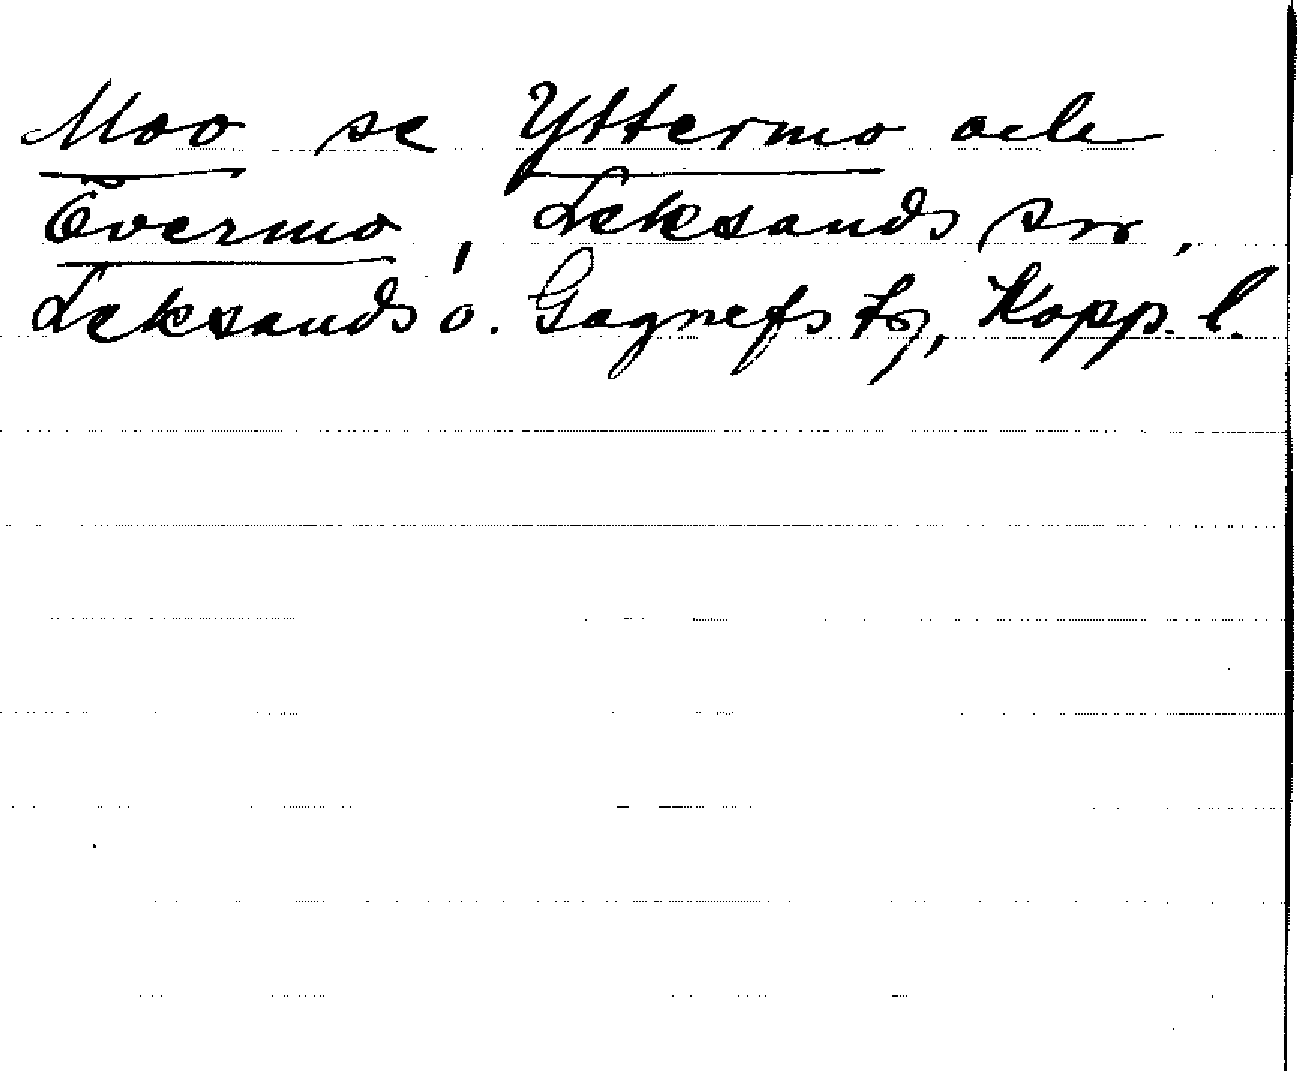 Moo se Yttermo och
Övermo, Leksands sn,
Leksands o. Gagnefs tg, Kopp. l.